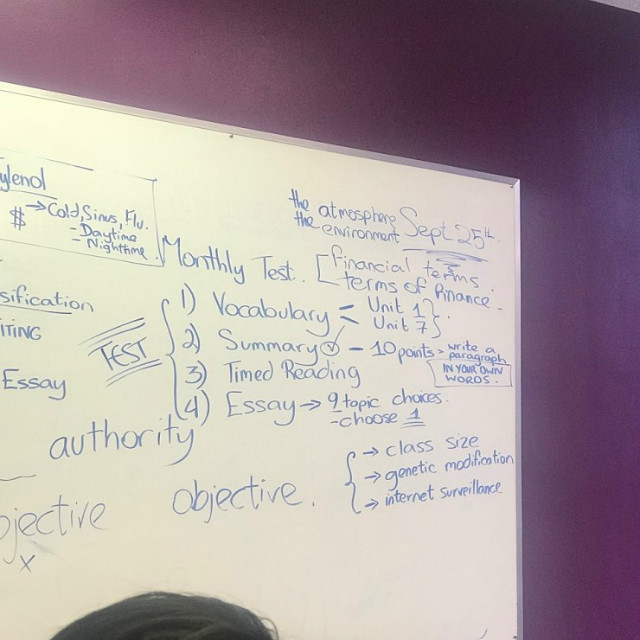 ylenol
$ → Cold, Sinus, Flu.
- Daytime
- Nighttime
the atmosphere
the environment
Sept 25th.
Monthly Test.
[financial terms
terms of finance.
sification
ITING
Essay
TEST
1) Vocabulary < Unit 1
Unit 7
2) Summary ✓ - 10 points > write a paragraph
IN YOUR OWN WORDS.
3) Timed Reading
4) Essay → 9 topic choices.
- choose 1
authority
→ class size
→ genetic modification
→ internet surveillance
jective
x
objective.